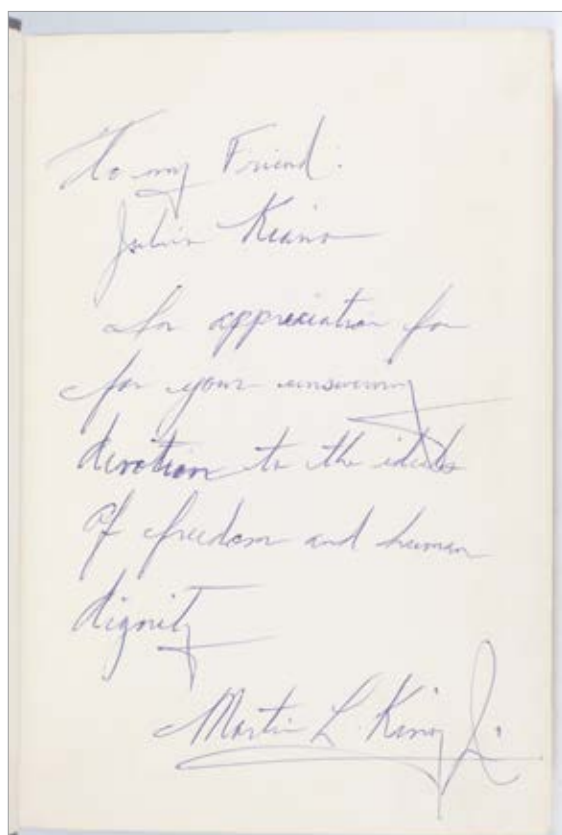 To my Friend:
Julius Kiano
In appreciation for
for your unswerving
devotion to the ideals
of freedom and human
dignity
Martin L. King Jr.